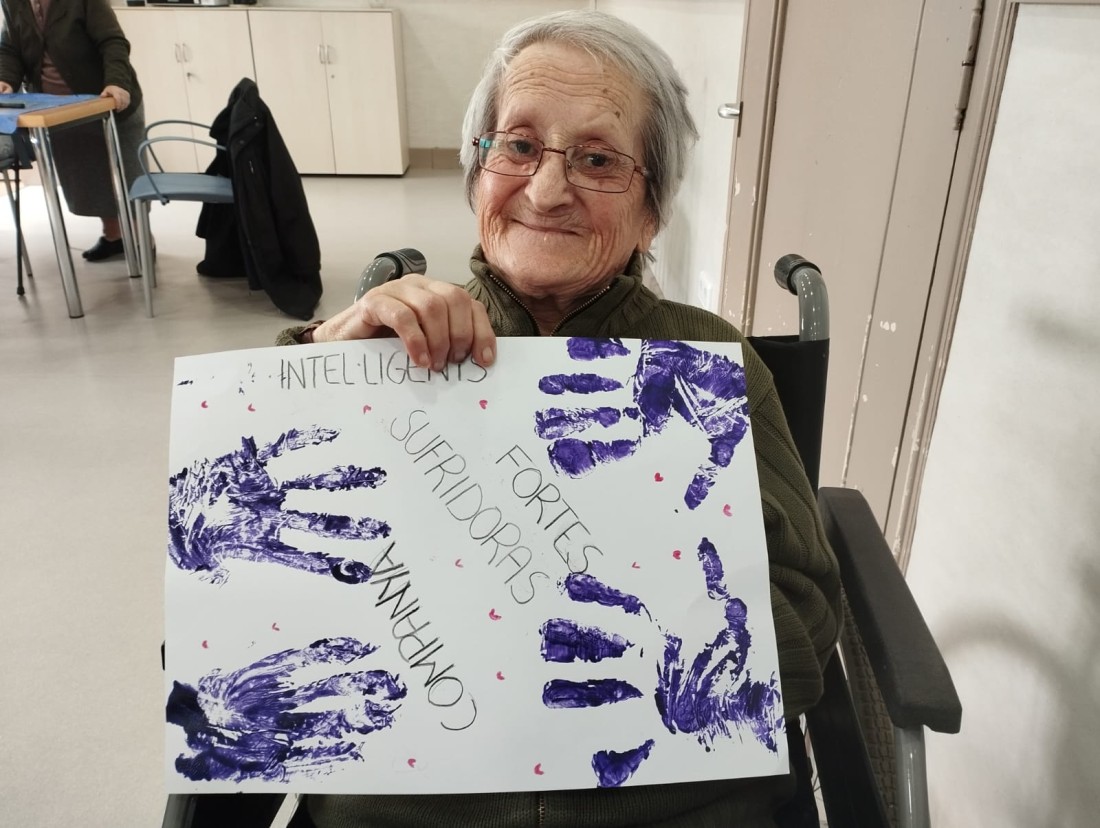 INTEL·LIGENTS
SUFRIDORAS
FORTES
COMPANYIA